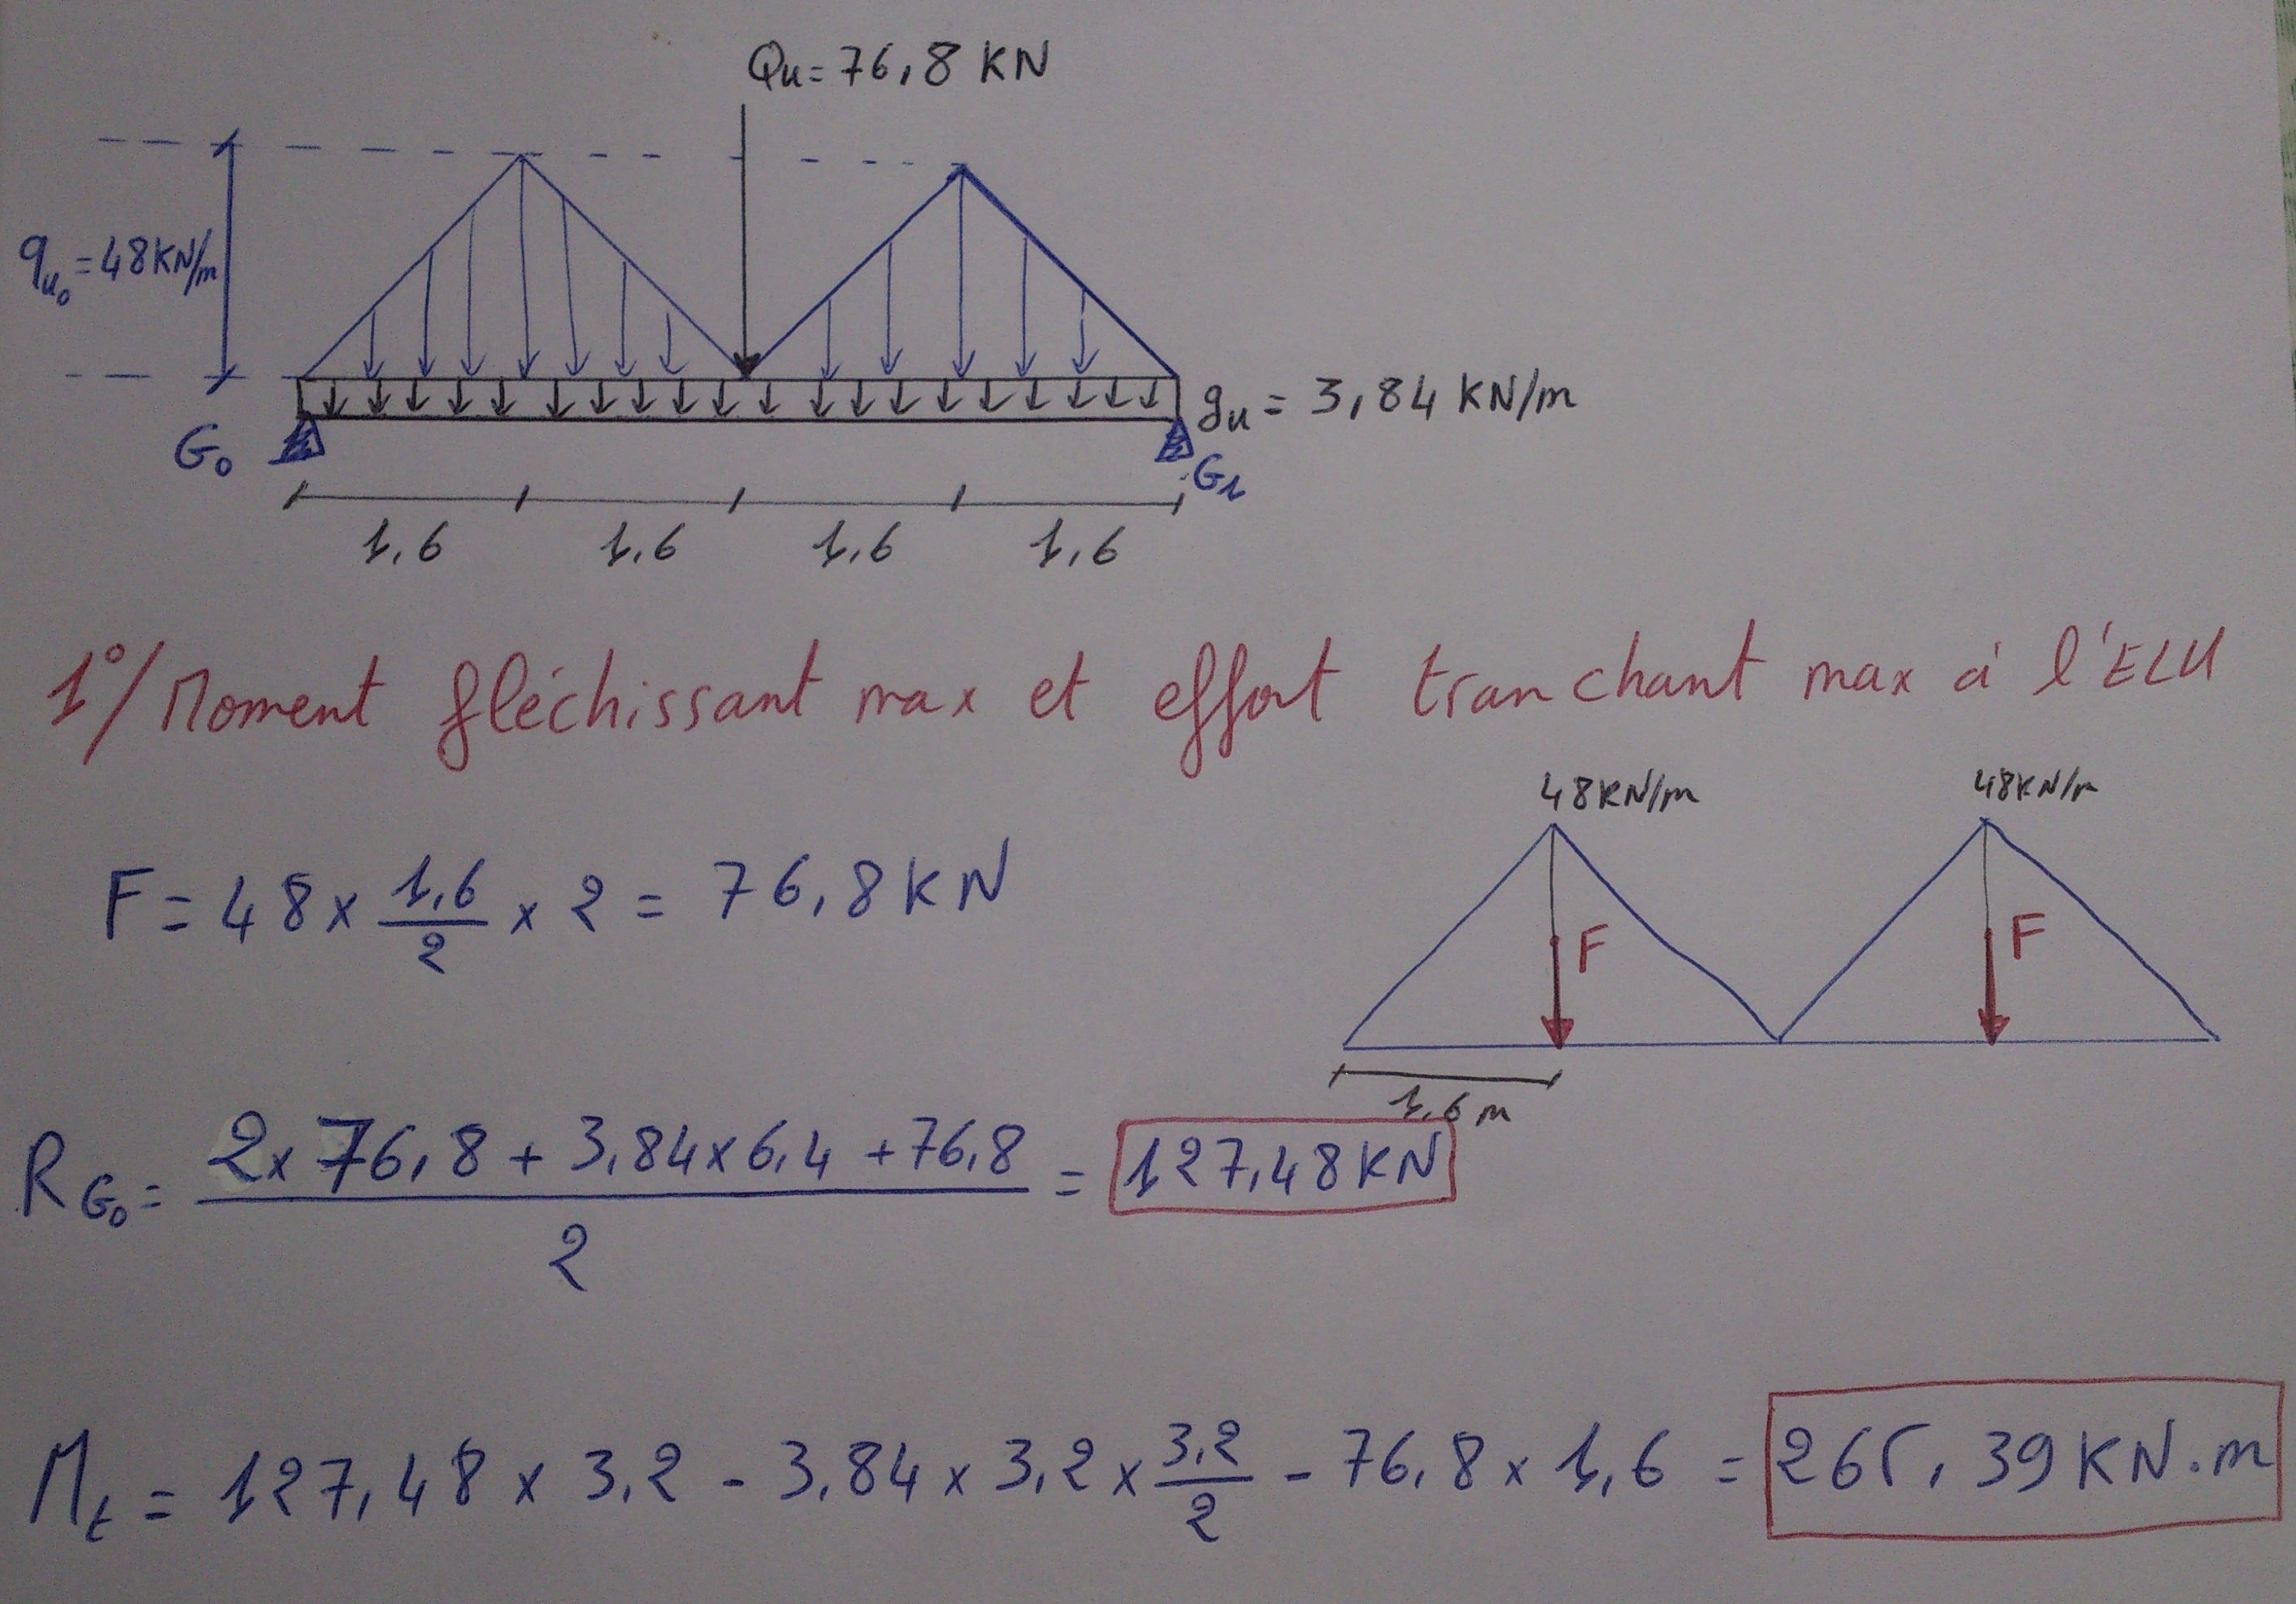 Qu= 76,8 KN
qu0 = 48KN/m
gu = 3,84 KN/m
G0
G1
1,6 1,6 1,6 1,6
1°/ Moment fléchissant max et effort tranchant max à l'ELU
48KN/m 48KN/m
F = 48 x 1,6/2 x 2 = 76,8 KN
F F
1,6 m
RG0 = (2x 76,8 + 3,84x6,4 +76,8)/2 = 127,48 KN
Mt = 127,48 x 3,2 - 3,84 x 3,2 x 3,2/2 - 76,8 x 1,6 = 265,39 KN.m